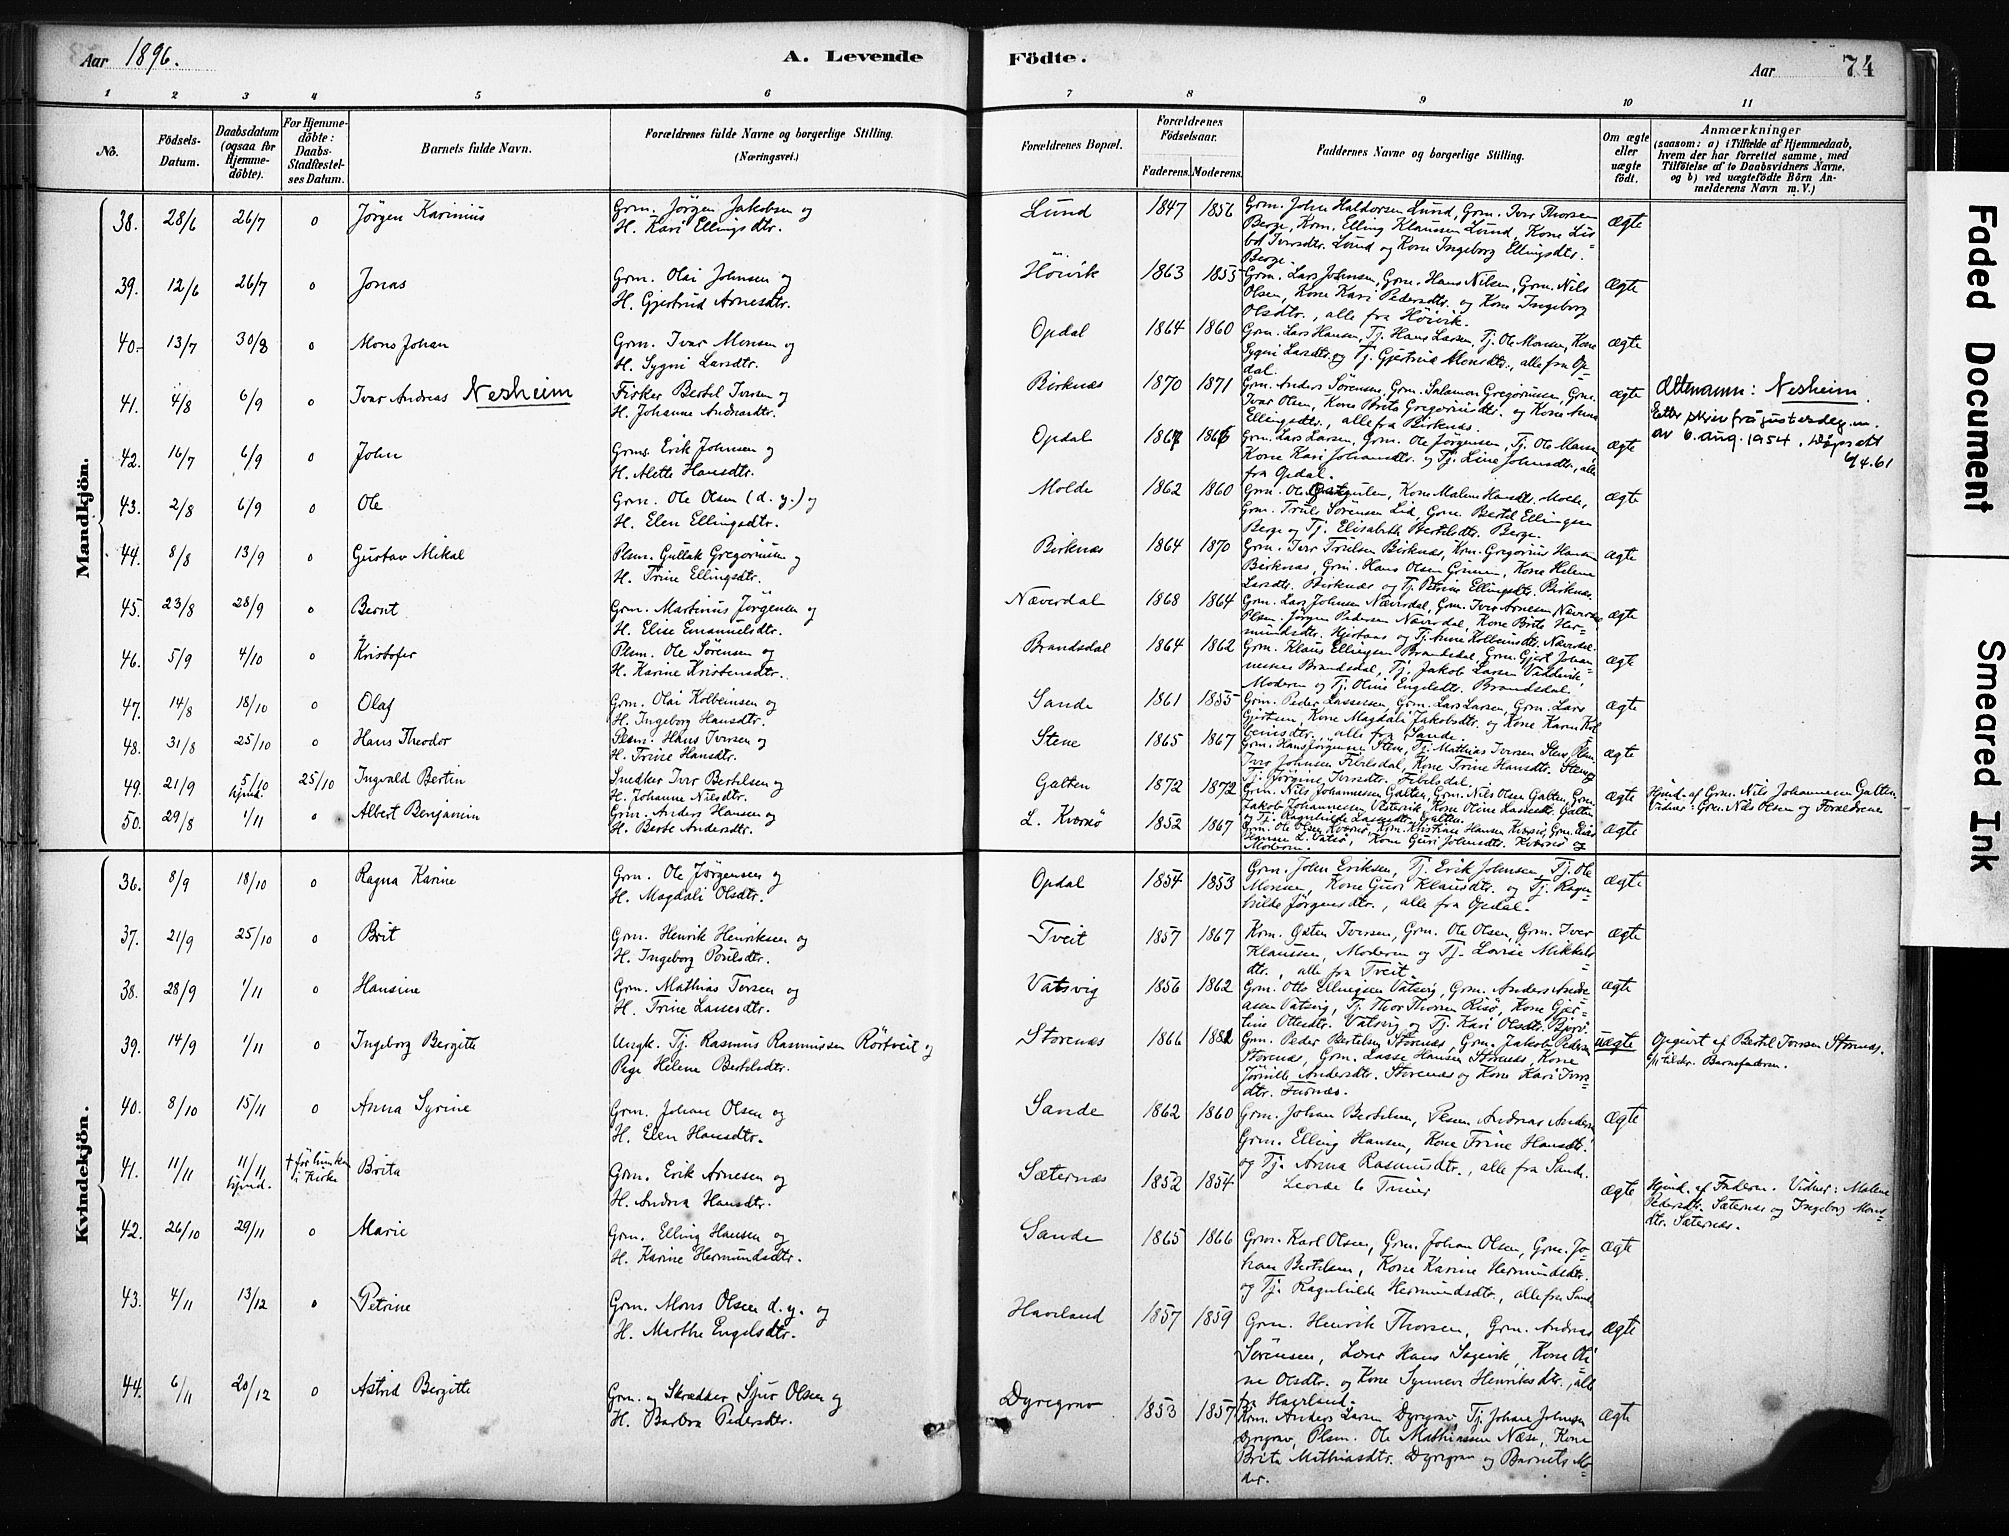 Aar 1896.
A. Levende
Födte.
Aar
74
1 2 3 4 5 6 7 8 9 10 11
Nô.
Födsels-Datum.
Daabsdatum (ogsaa for Hjemmedöbte).
For Hjemmedöbte: Daabs-Stadfæstelses Datum.
Barnets fulde Navn.
Forældrenes fulde Navne og borgerlige Stilling.
(Næringsvei.)
Forældrenes Bopæl.
Forældrenes Födselsaar.
Faderens. Moderens.
Faddernes Navne og borgerlige Stilling.
Om ægte eller uægte födt.
Anmærkninger
(saasom: a) i Tilfælde af Hjemmedaab, hvem der har forrettet samme, med Tilföielse af to Daabsvidners Navne, og b) ved uægtefödte Börn Anmelderens Navn m. V.)
Mandkjön.
38. 28/6 26/7 o Jörgen Karinius Grm. Jörgen Jakobsen og
H. Kari Ellingsdtr. Lund 1847 1856 Grm. John Haldorsen Lund, Grm. Iver Thorsen
Berge, Krm. Elling Klaussen Lund, Kone Lis-
bet Iversdtr. Lund og Kone Ingeborg Ellingsdtr.
Berge. ægte
39. 12/6 26/7 o Jonas Grm. Olai Johnsen og
H. Gjertrud Arnesdtr. Höivik 1863 1855 Grm. Lars Johnsen, Grm. Hans Nilsen, Grm. Nils
Olsen, Kone Kari Pedersdtr. og Kone Ingeborg
Olsdtr., alle fra Höivik. ægte
40. 13/7 30/8 o Mons Johan Grm. Ivar Monsen og
H. Sygni Larsdtr. Opdal 1864 1860 Grm. Lars Hansen, Tj. Hans Larsen, Tj. Ole Monsen, Kone
Sygni Larsdtr. og Tj. Gjertrud Monsdtr., alle fra Op-
dal. ægte
41. 4/8 6/9 o Ivar Andreas Nesheim Fisker Bertel Iversen og
H. Johanne Andreasdtr. Birknæs 1870 1871 Grm. Anders Sörensen, Grm. Salamon Gregoriussen, Grm.
Ivar Olsen, Kone Brita Gregoriusdtr. og Kone Anna
Ellingsdtr., alle fra Birknæs. ægte Ættenamn: Nesheim.
Etter skriv frå justisdep.m.
av 6. aug. 1954.
4/4.61
42. 16/7 6/9 o John Grm. Erik Johnsen og
H. Alette Hansdtr. Opdal 1867 1866 Grm. Lars Larsen, Grm. Ole Jörgensen, Tj. Ole Monsen
Kone Kari Johansdtr. og Tj. Line Johnsdtr., alle
fra Opdal. ægte
43. 2/8 6/9 o Ole Grm. Ole Olsen (d. y.) og
H. Elen Ellingsdtr. Molde 1862 1860 Grm. Ole, Kone Malene Hansdtr. Molde,
Grm. Truls Sörensen Lid, Grm. Bertel Ellingsen
Berge og Tj. Elisabeth Bertelsdtr. Berge. ægte
44. 8/8 13/9 o Gustav Mikal Plsm. Gullak Gregoriusen og
H. Trine Ellingsdtr. Birknæs 1864 1870 Grm. Iver Trulsen Birknæs, Krm. Gregorius Hansen
Birknæs, Grm. Hans Olsen, Kone Helene
Larsdtr. Birknæs og Tj. Petrine Ellingsdtr. Birknæs. ægte
45. 23/8 28/9 o Bernt Grm. Martinus Jörgensen og
H. Elise Emanuelsdtr. Næverdal 1868 1864 Grm. Lars Johnsen Næverdal, Grm. Iver Arnesen Næverdal
Plsm. Jörgen Pedersen Næverdal, Kone Brite Her-
mundsdtr. og Tj. Anne Kolbeinsdtr. Næverdal. ægte
46. 5/9 4/10 o Kristofer Plsm. Ole Sörensen og
H. Karine Kristensdtr. Brandsdal 1864 1862 Grm. Klaus Ellingsen Brandsdal, Grm. Gjert Johan-
nessen Brandsdal, Tj. Jakob Larsen,
Moderen og Tj. Oline Engelsdtr. Brandsdal. ægte
47. 14/8 18/10 o Olaf Grm. Olai Kolbeinsen og
H. Ingeborg Hansdtr. Sande 1861 1855 Grm. Peder Lassesen, Grm. Lars Larsen, Grm. Lars
Gjertsen, Kone Magdali Jakobsdtr. og Kone Karen Kol-
beinsdtr., alle fra Sande ægte
48. 31/8 25/10 o Hans Theodor Plsm. Hans Iversen og
H. Trine Hansdtr. Stene 1865 1867 Grm. Hans Jörgensen Stene, Tj. Mathias Iversen Stene, Plsm.
Iver Johnsen Fibelsdal, Kone Trine Hansdtr. Stene og
Tj. Jörgine Iversdtr. Fibelsdal. ægte
49. 21/9 5/10 hjmd. 25/10 Ingvald Bertin Snedker Iver Bertelsen og
H. Johanne Nilsdtr. Galten 1872 1872 Grm. Nils Johannessen Galten, Grm. Nils Olsen Galten, Grm.
Jakob Johannessen, Kone Oline Lassesdtr. Galten
og Tj. Ragnhilde Lassesdtr. Galten. ægte Hjmd. af Grm. Nils Johannessen Galten.
Vidner: Grm. Nils Olsen og Forældrene
50. 29/8 1/11 o Albert Benjamin Grm. Anders Hansen og
H. Berte Andersdtr. L. Kversö 1852 1867 Grm. Ole Olsen Kversö, Krm. Kristian Hansen Kversö, Grm.
Hansen L., Kone Guri Johnsdtr. Kversö og
Moderen. ægte
Kvindekjön.
36. 8/9 18/10 o Ragna Karine Grm. Ole Jörgensen og
H. Magdali Olsdtr. Opdal 1854 1853 Grm. John Eriksen, Tj. Erik Johnsen, Tj. Ole
Monsen, Kone Guri Klausdtr. og Tj. Ragn-
hilde Jörgensdtr., alle fra Opdal. ægte
37. 21/9 25/10 o Brit Grm. Henrik Henriksen og
H. Ingeborg Poulsdtr. Tveit 1857 1867 Krm. Iversen, Grm. Ole Olsen, Grm. Iver
Klaussen, Moderen og Tj. Lovise Mikkels-
dtr., alle fra Tveit. ægte
38. 28/9 1/11 o Hansine Grm. Mathias Torsen og
H. Trine Lassesdtr. Vatsvig 1856 1862 Grm. Otto Ellingsen Vatsvig, Grm. Anders Andre-
assen Vatsvig, Tj. Thor Thorsen Risö, Kone Gjer-
tine Ottesdtr. Vatsvig og Tj. Kari Olsdtr. ægte
39. 14/9 1/11 o Ingeborg Bergitte Ungk. Tj. Rasmus Rasmussen Rörtveit og
Pige Helene Bertelsdtr. Storenæs 1866 1881 Grm. Peder Bertelsen Storenæs, Grm. Jakob Pedersen
Storenæs, Grm. Lasse Hansen Storenæs, Kone
Andersdtr. Storenæs og Kone Kari Ivers-
dtr. Furnæs. uægte Opgivet af Bertel Iversen Storenæs.
Barnefaderen.
40. 8/10 15/11 o Anna Syrine Grm. Johan Olsen og
H. Elen Hansdtr. Sande 1862 1860 Grm. Johan Bertelsen, Andreas Andersen
Grm. Elling Hansen, Kone Trine Hansdtr.
og Tj. Anna Rasmusdtr., alle fra Sande. ægte
41. 11/11 11/11 hjmd. † før bunken i Kirke Brita Grm. Erik Arnesen og
H. Andrea Hansdtr. Sæternæs 1852 1854 Levede to Timer ægte Hjmd. af Faderen. Vidner: Malene
Pedersdtr. Sæternæs og Ingeborg Mons-
dtr. Sæternæs.
42. 26/10 29/11 o Marie Grm. Elling Hansen og
H. Karine Hermundsdtr. Sande 1865 1866 Grm. Karl Olsen, Grm. Johan Olsen, Grm. Jo-
han Bertelsen, Kone Karine Hermundsdtr.
og Tj. Ragnhilde Hermundsdtr., alle fra Sande ægte
43. 4/11 13/12 o Petrine Grm. Mons Olsen d. y. og
H. Marthe Engelsdtr. Haveland 1857 1859 Grm. Henrik Thorsen, Grm. Andreas
Sörensen, Lærer Hans, Kone Oli-
ne Olsdtr. og Kone Synneva Henriksdtr., alle
fra Haveland. ægte
44. 6/11 20/12 o Astrid Bergitte Grm. og Skrædder Sjur Olsen og
H. Barbra Pedersdtr. Dyregrav 1853 1857 Krm. Anders Larsen Dyregrav, Tj. Johan Johnsen
Dyregrav, Plsm. Ole Mathiassen Næse, Kone
Brita Mathiasdtr. Dyregrav og Barnets Mo-
der. ægte
Faded Document
Smeared Ink